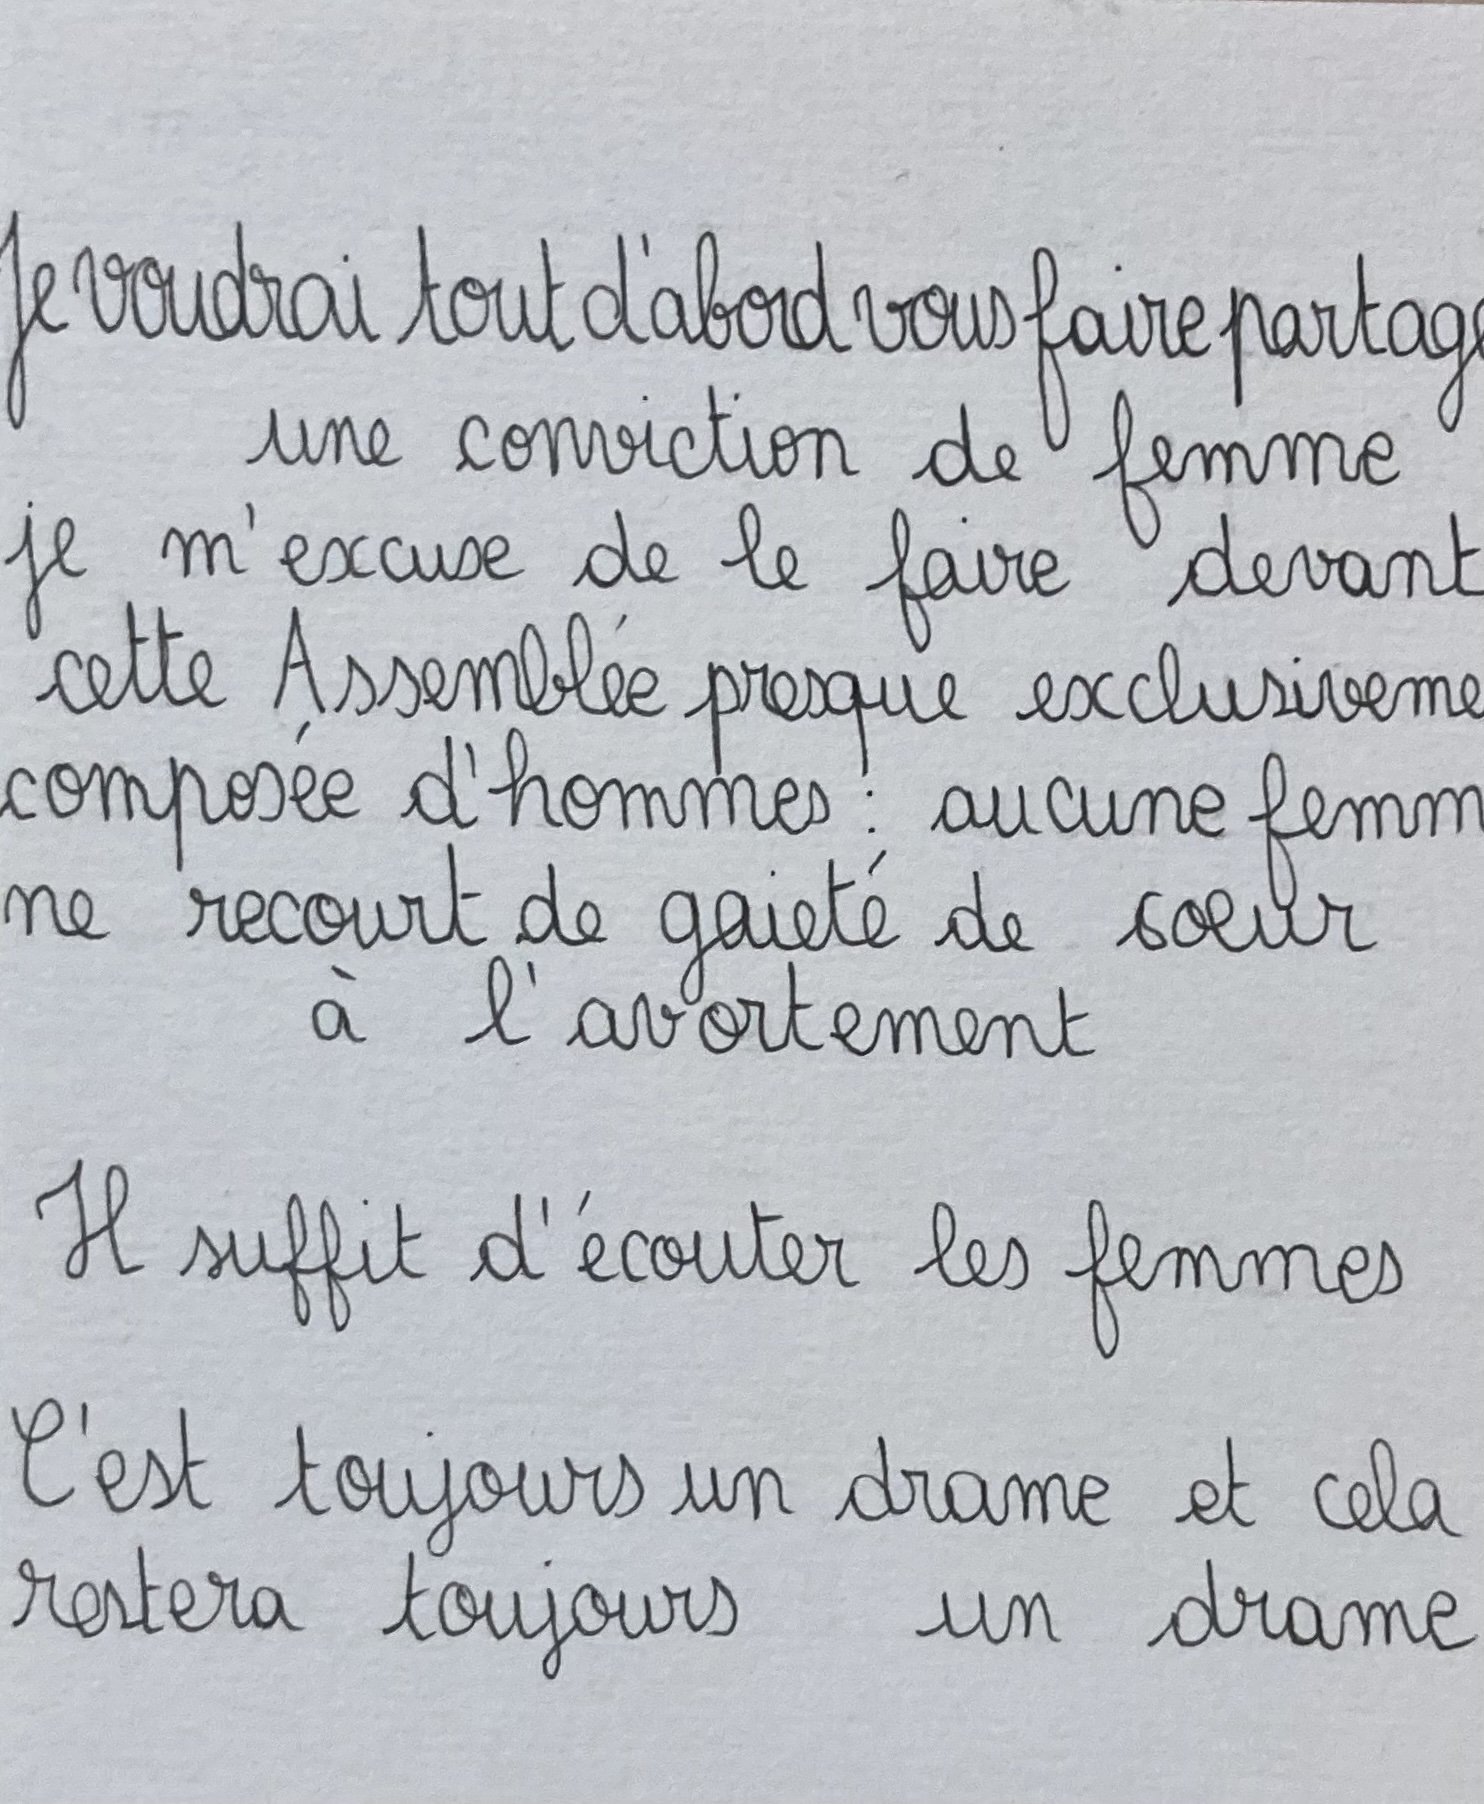 Je voudrai tout d'abord vous faire partage
une conviction de femme
je m'excuse de le faire devant
cette Assemblée presque exclusiveme
composée d'hommes : aucune femm
ne recourt de gaieté de cœur
à l'avortement
Il suffit d'écouter les femmes
C'est toujours un drame et cela
restera toujours un drame